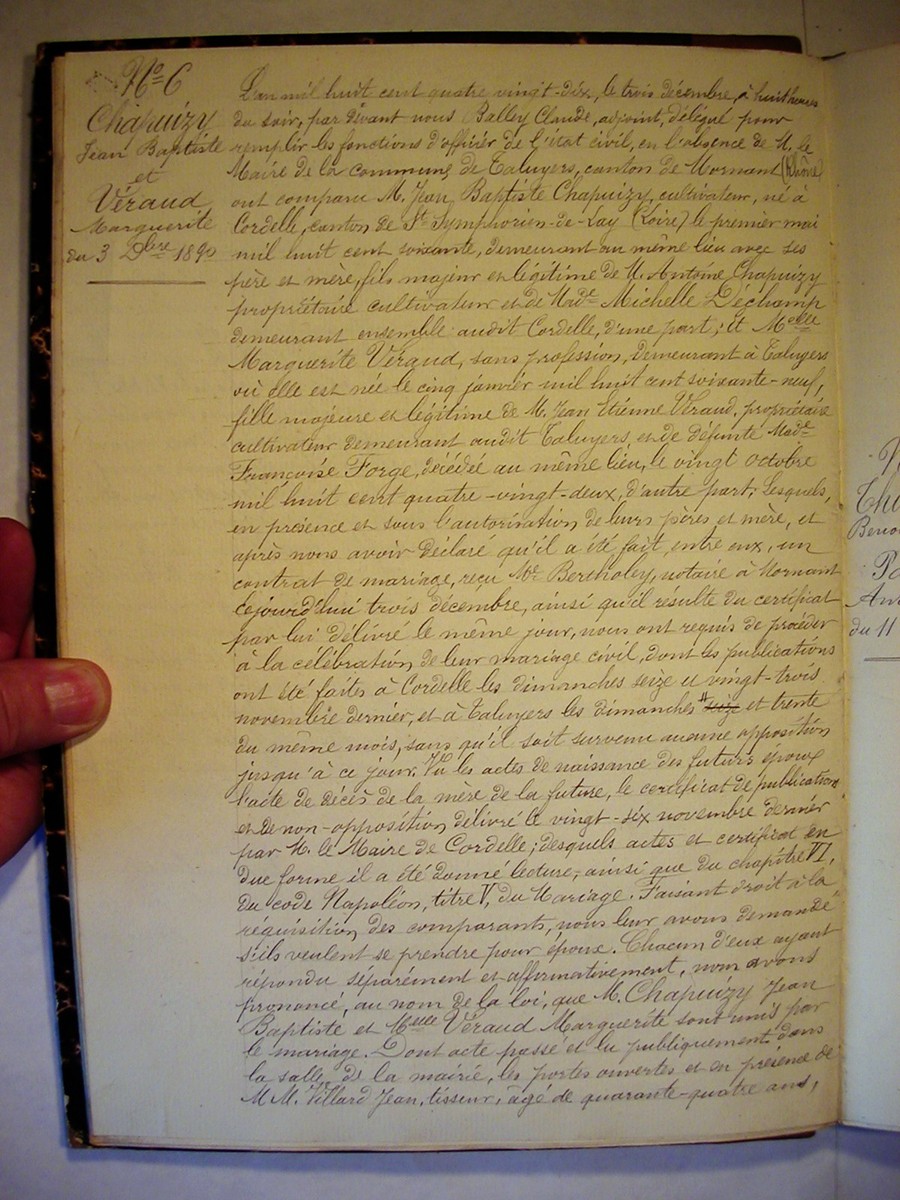 No 6
Chapuizy
Jean Baptiste
et
Véraud
Marguerite
du 3 Dbre 1890
L'an mil huit cent quatre vingt-dix, le trois décembre, à huit heures
du soir, par devant nous Balley Claude, adjoint, délégué pour
remplir les fonctions d'officier de l'état civil, en l'absence de M. le
Maire de la commune de Taluyers, canton de Mornant (Rhône)
ont comparu M. Jean Baptiste Chapuizy, cultivateur, né à
Cordelle, canton de St Symphorien-de-Lay (Loire) le premier mai
mil huit cent soixante, demeurant au même lieu avec ses
père et mère, fils majeur et légitime de M. Antoine Chapuizy
propriétaire cultivateur et de Made Michelle Déchamp
demeurant ensemble audit Cordelle, d'une part; et Melle
Marguerite Véraud, sans profession, demeurant à Taluyers
où elle est née le cinq janvier mil huit cent soixante-neuf,
fille majeure et légitime de M. Jean Etienne Véraud, propriétaire
cultivateur demeurant audit Taluyers, et de défunte Made
Françoise Forge, décédée au même lieu, le vingt octobre
mil huit cent quatre-vingt-deux, d'autre part; Lesquels,
en présence et sous l'autorisation de leurs pères et mère, et
après nous avoir déclaré qu'il a été fait, entre eux, un
contrat de mariage, reçu Me Bertholey, notaire à Mornant
cejourd'hui trois décembre, ainsi qu'il résulte du certificat
par lui délivré le même jour, nous ont requis de procéder
à la célébration de leur mariage civil, dont les publications
ont été faites à Cordelle les dimanches seize et vingt-trois
novembre dernier, et à Taluyers les dimanches seize et trente
du même mois, sans qu'il soit survenu aucune opposition
jusqu'à ce jour. Vu les actes de naissance des futurs époux
l'acte de décès de la mère de la future, le certificat de publication
et de non-opposition délivré le vingt-six novembre dernier
par M. le Maire de Cordelle; desquels actes et certificat en
due forme il a été donné lecture, ainsi que du chapitre VI,
du code Napoléon, titre V, du Mariage. Faisant droit à la
réquisition des comparants, nous leur avons demandé
s'ils veulent se prendre pour époux. Chacun d'eux ayant
répondu séparément et affirmativement, nous avons
prononcé, au nom de la loi, que M. Chapuizy Jean
Baptiste et Melle Véraud Marguerite sont unis par
le mariage. Dont acte passé et lu publiquement dans
la salle de la mairie, les portes ouvertes et en présence de
M M. Villard Jean, tisseur, âgé de quarante-quatre ans,
du 11